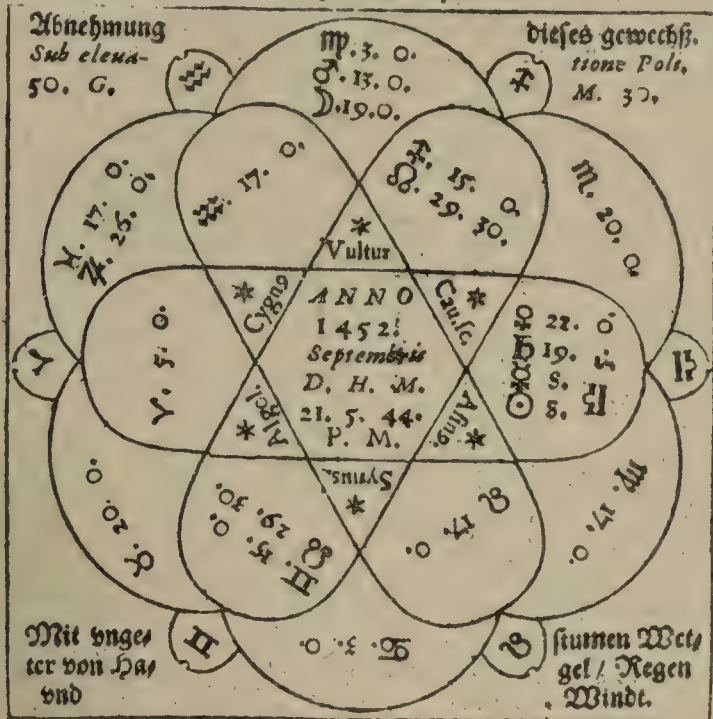 Abnehmung
Sub eleua-
50. G.
dieses gewechß.
tione Poli,
M. 30.
♒
♐
♍. 3. 0.
♂. 13. 0.
☽. 19. 0.
♒. 17. 0.
♐. 15. 0
☊. 29. 30.
♓. 17. 0.
♃. 26. 0.
♏. 20. 0.
Vultur
Cygnꝰ
Cau.sc.
ANNO
1452.
Septembris
D. H. M.
21. 5. 44.
P. M.
Algol.
Asing.
Syrius.
♈
♈. 5. 0.
22. 0.
19. 5.
☉ 8.
♎
♎
♉. 20. 0.
♊. 15. 0.
☋ 29. 30.
♌ 17. 0.
♍. 17. 0.
♊
♋. 3. 0.
♌
Mit vnge⸗
ter von Ha⸗
vnd
stumen Wet⸗
gel / Regen
Windt.